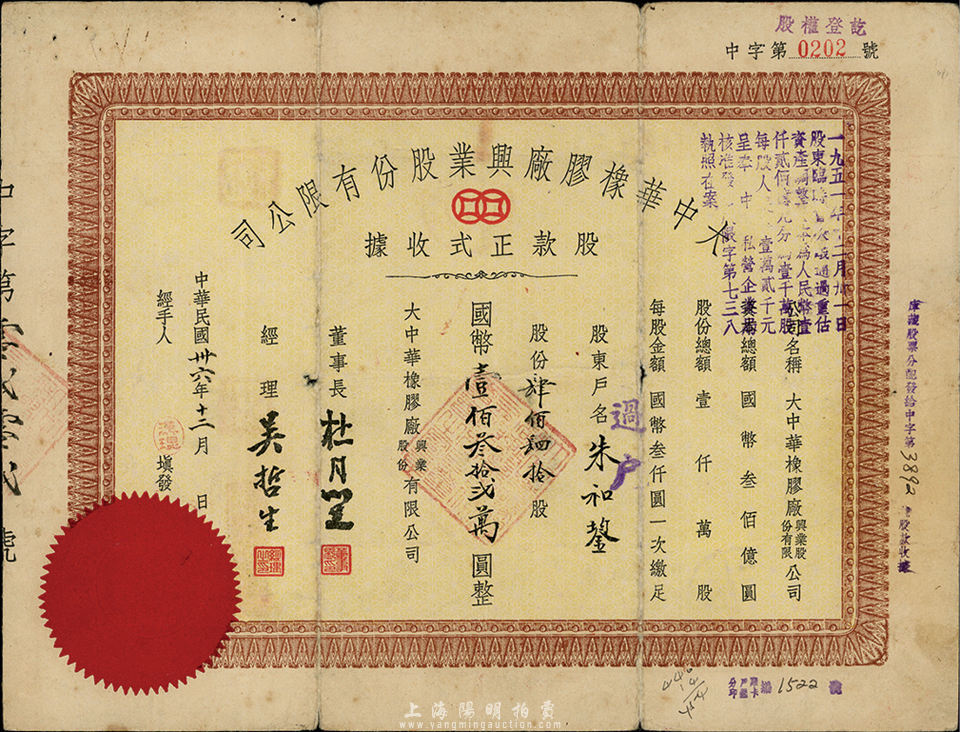 股權登訖
中字第0202號
大中華橡膠廠興業股份有限公司
股款正式收據
一九五一年十二月卅一日
股東臨時會決議通過重估
資產調整資本為人民幣壹
仟貳佰億元分為壹千萬股
每股人民幣壹萬貳千元
呈奉中央私營企業局
核准發給設字第七三八
執照在案
公司名稱 大中華橡膠廠興業股份有限公司
資本總額 國幣叁佰億圓
股份總額 壹仟萬股
每股金額 國幣叁仟圓一次繳足
股東戶名 朱和鎣
過戶
股份肆佰肆拾股
國幣壹佰叁拾弍萬圓整
大中華橡膠廠興業股份有限公司
董事長 杜月笙
經理 吳哲生
中華民國卅六年十二月 日
經手人 填發
中字第零弍零弍號
3892
1522
上海陽明拍賣
www.yangmingauction.com